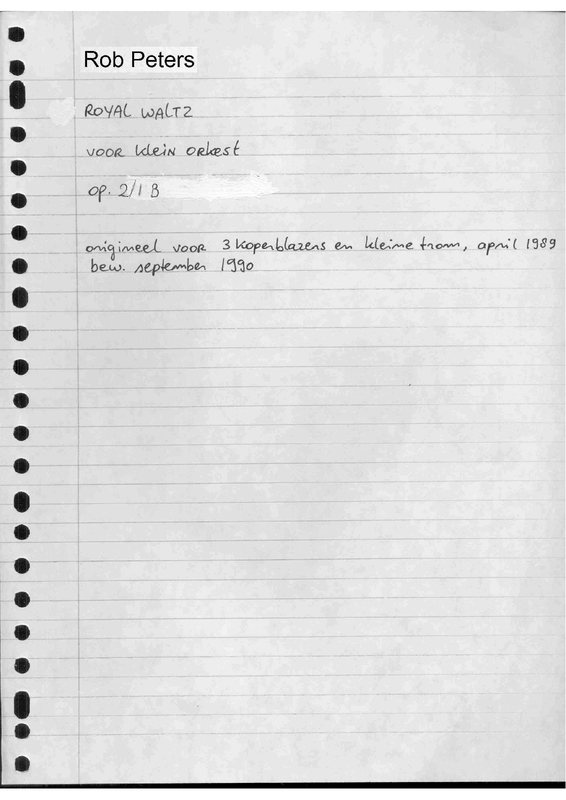 Rob Peters
ROYAL WALTZ
VOOR klein ORkest
op. 2/1 B
origineel voor 3 koperblazers en kleine trom, april 1989
bew. september 1990